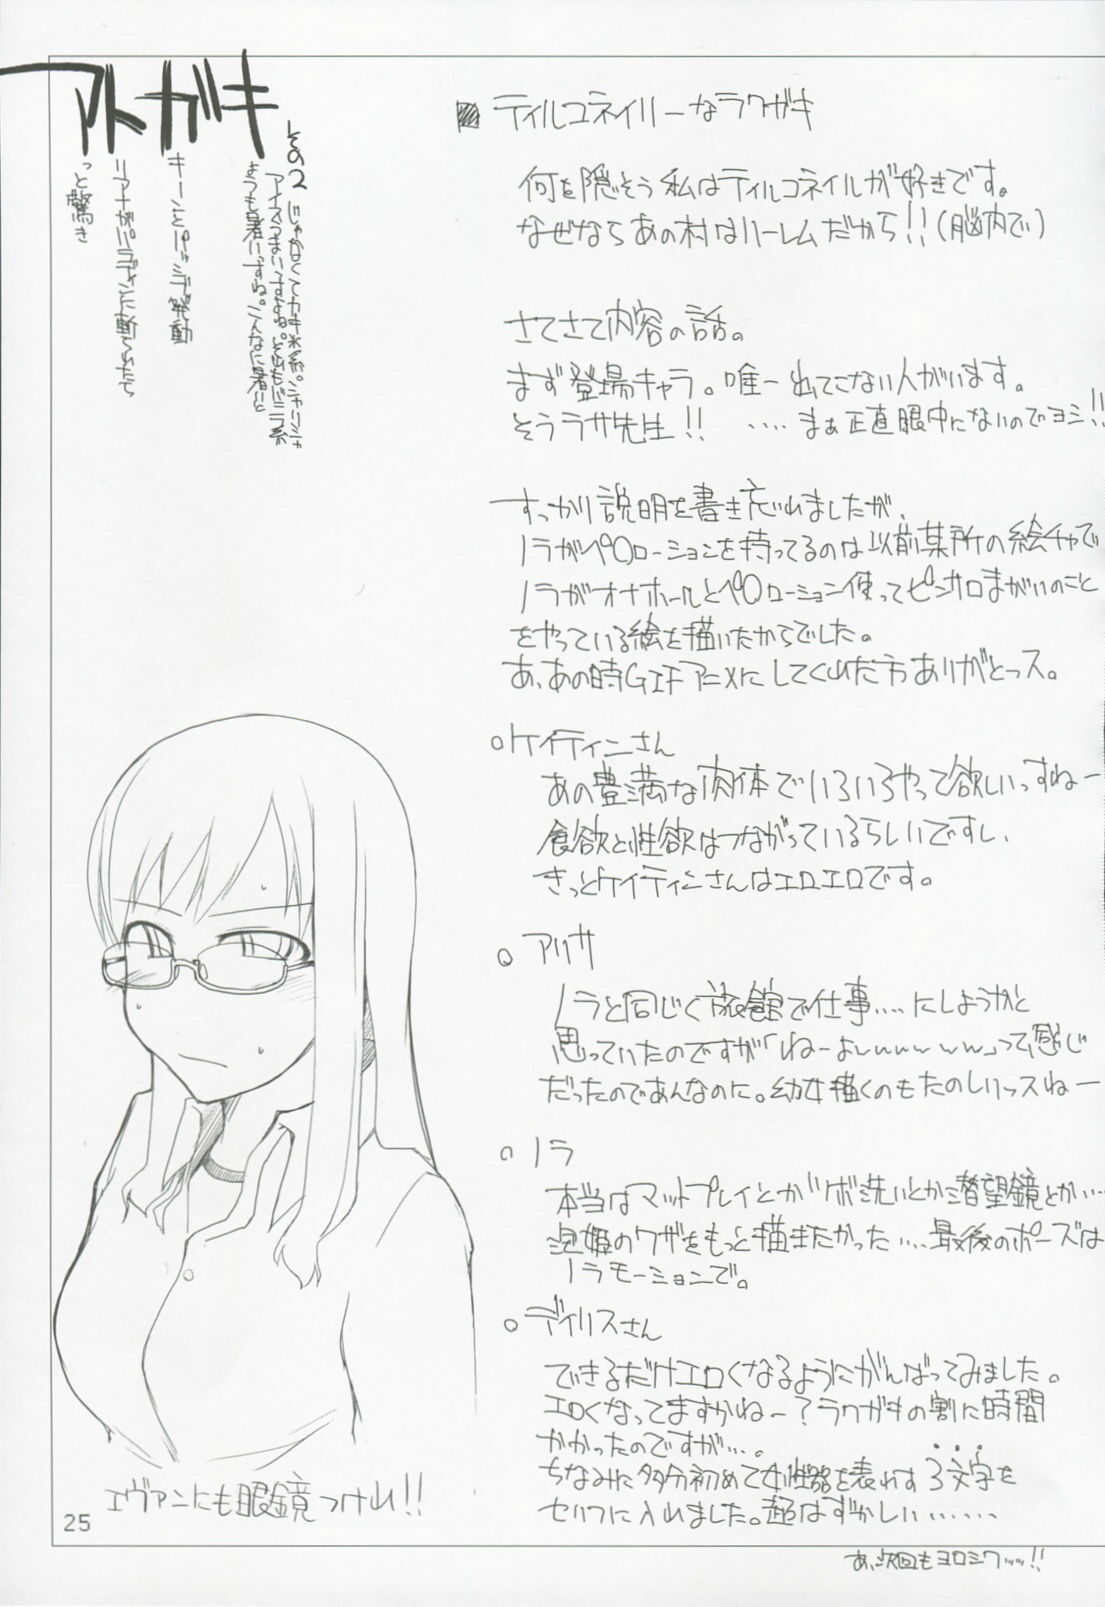 アトガキ
その2
じゃなくてカキ氷系。シャリシャ
アイスうまいっすよね。それもバニラ系
とっても暑いっすね。こんなに暑いと
キーンとパッシブ発動
リアナがパラディンに斬られたら
っと驚き
ティルコネイリーなラクガキ
何を隠そう私はティルコネイルが好きです。
なぜならあの村はハーレムだから!!(脳内で)
さてさて内容の話。
まず登場キャラ。唯一出てこない人がいます。
そうラサ先生!! ‥‥まぁ正直眼中にないのでヨシ!!
すっかり説明を書き忘れましたが、
ノラがペ○ローションを持ってるのは以前某所の絵チャで
ノラがオナホールとペ○ローション使ってピンサロまがいのこと
をやっている絵を描いたからでした。
あ、あの時GIFアニメにしてくれた方ありがとっス。
○ケイティンさん
あの豊満な肉体でいろいろやって欲しいっすねー
食欲と性欲はつながっているらしいですし、
きっとケイティンさんはエロエロです。
○アリサ
ノラと同じく旅館で仕事‥‥にしようかと
思っていたのですが「ねーよwwwww」って感じ
だったのであんなのに。幼女描くのもたのしいッスねー
○ノラ
本当はマットプレイとかツボ洗いとか潜望鏡とか‥‥
泡姫のワザをもっと描きたかった‥‥最後のポーズは
ノラモーションで。
○ディリスさん
できるだけエロくなるようにがんばってみました。
エロくなってますかねー?ラクガキの割に時間
かかったのですが‥‥。
ちなみに多分初めて女性器を表わす3文字を
セリフに入れました。超はずかしい‥‥‥
エヴァンにも眼鏡つけれ!!
25
あ、次回もヨロシクッッ!!